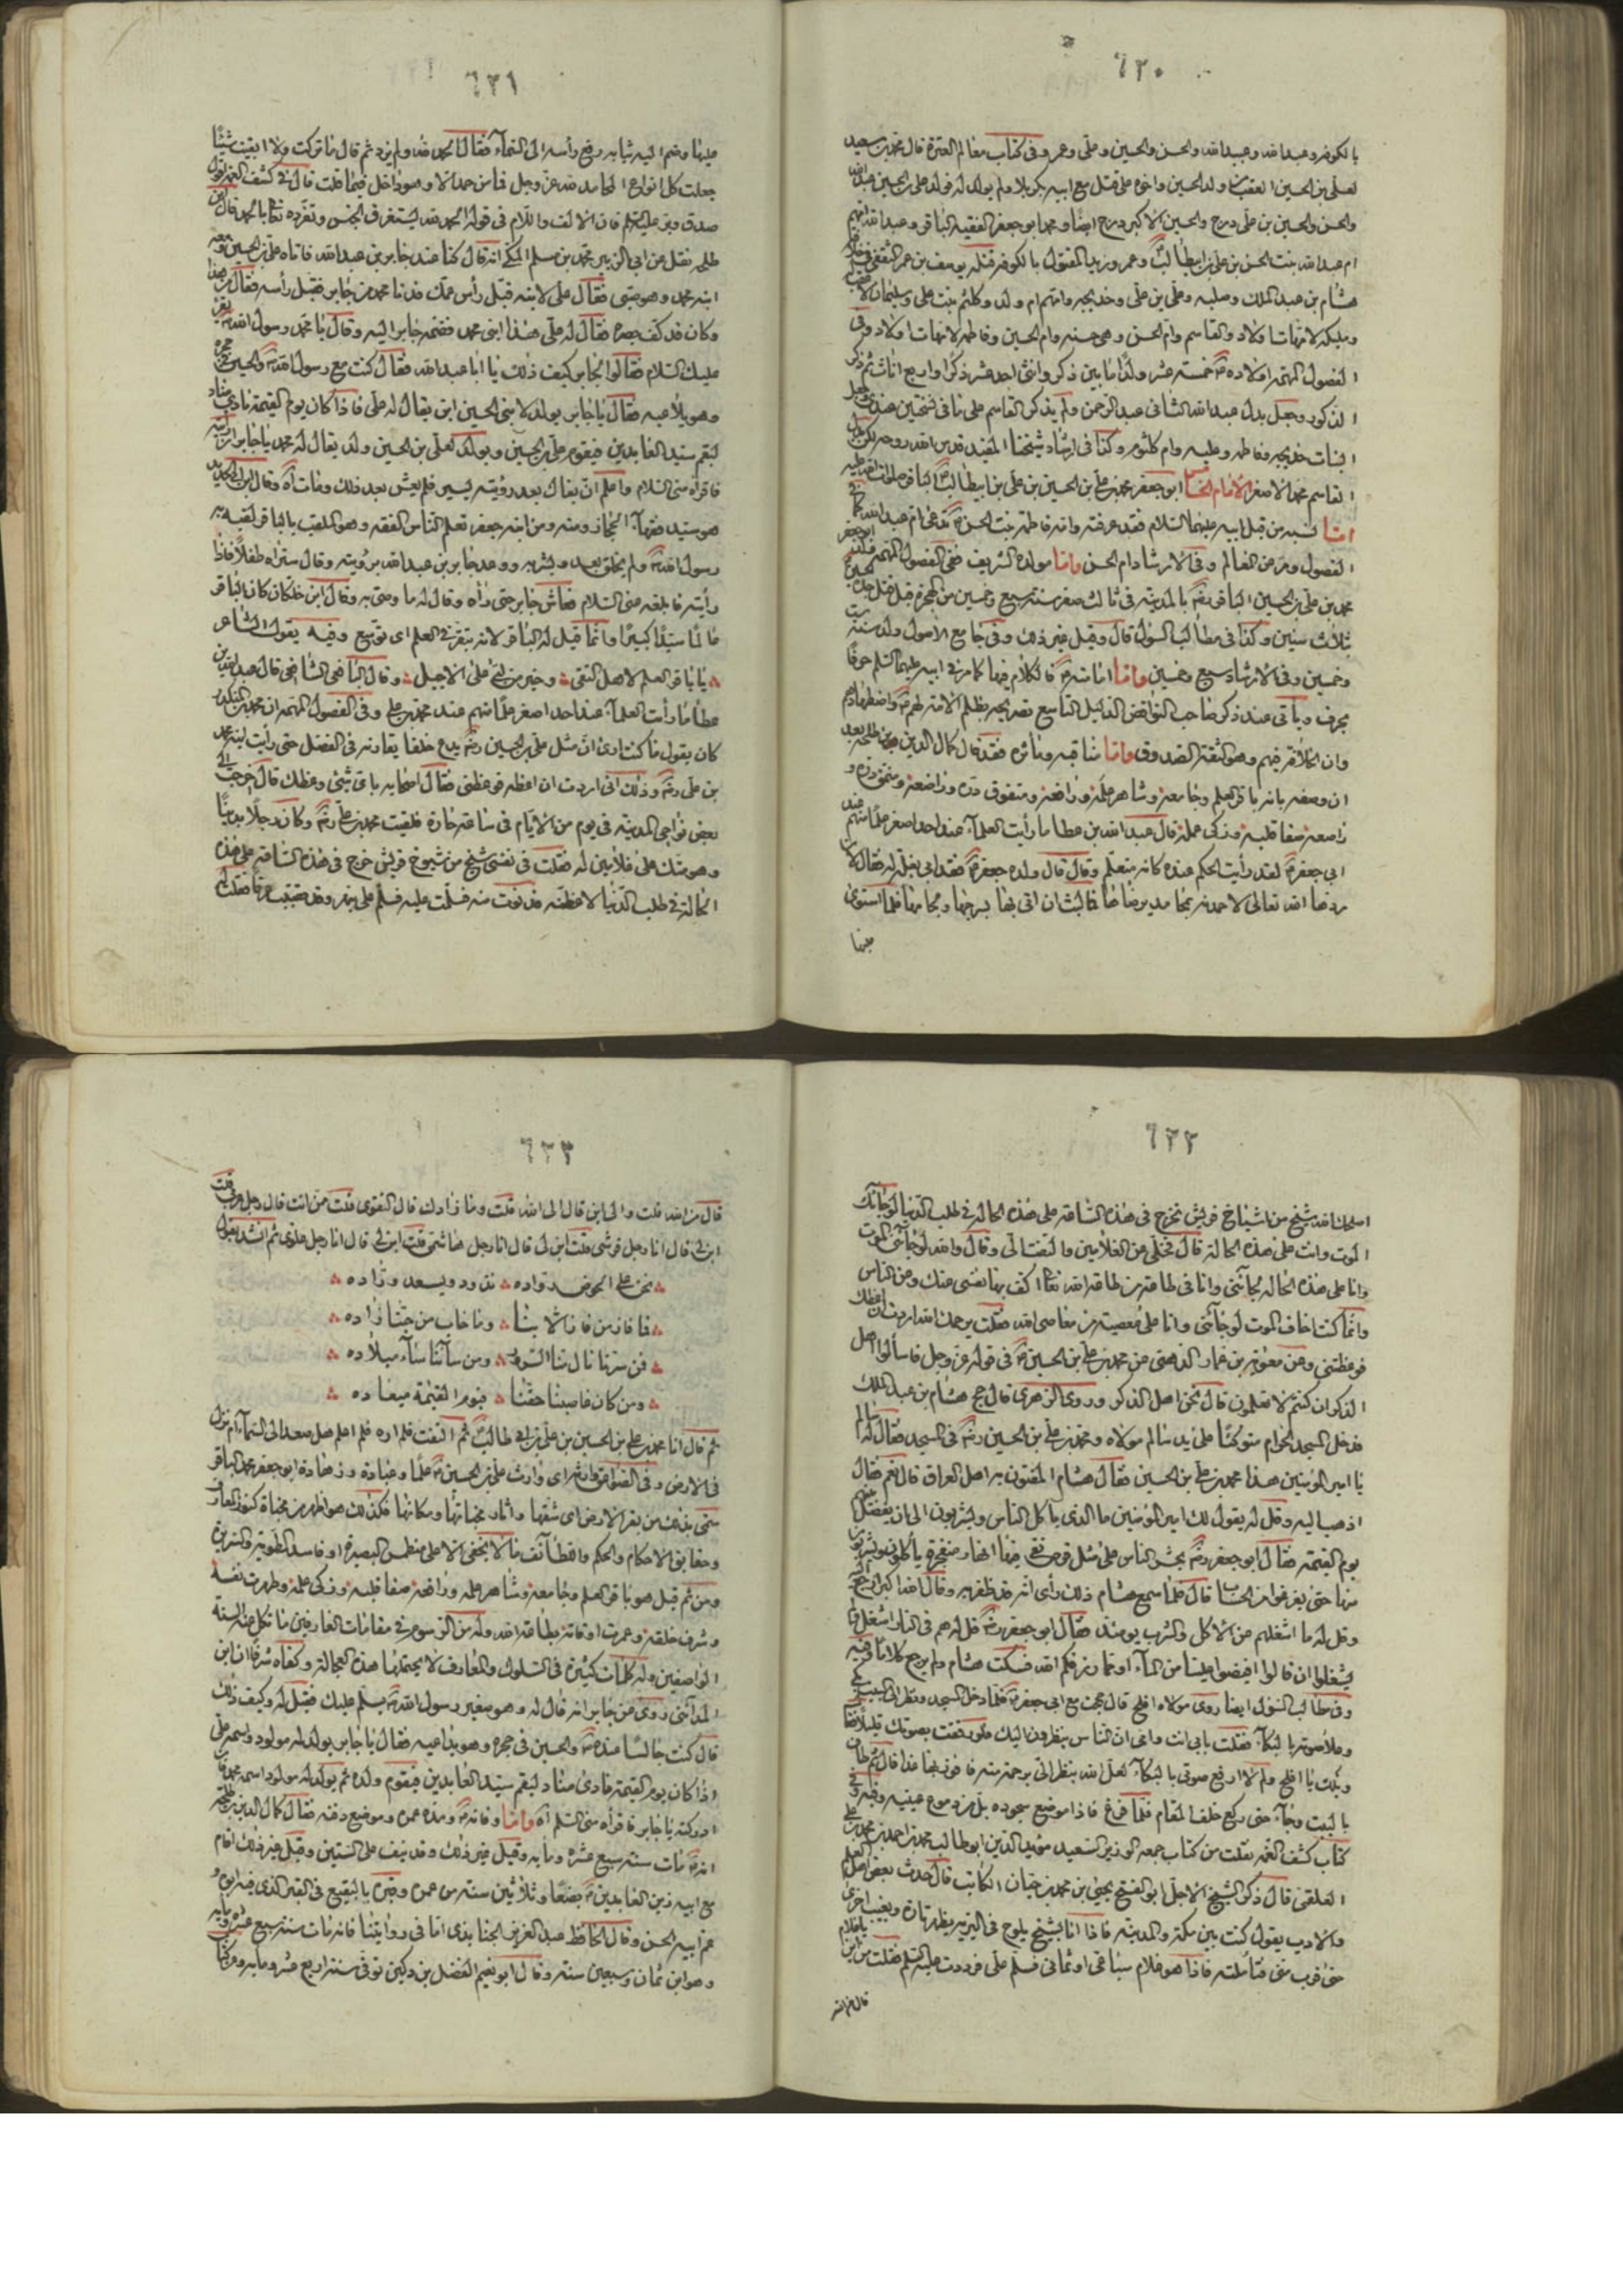 ٦٣٠
بالكوفه وعبد الله وعبيد الله والحسن والحسين وعلى وعمر وفى كتاب معالم العترة قال محمد بن سعيد
لعلى بن الحسين العقب ولد الحسين واخوه على قتل مع ابيه بكربلا ولم يولد له فولد على بن الحسين عبد الله
والحسن والحسين بن على درج والحسين الاكبر درج ايضا ومحمد ابو جعفر الفقيه الباقر وعبد الله امهم
ام عبد الله بنت الحسن بن على بن ابيطالب وعمر وزيد المقتول بالكوفه قتله يوسف بن عمر الثقفى فى خلافة
هشام بن عبد الملك وصلبه وعلى بن على وخديجه وامهم ام ولد وكلثم بنت على وسليمان لا عقب له
ومليكه لامهات اولاد والقاسم وام الحسن وهى حسنه وام الحسين وفاطمه لامهات اولاد وفى
الفصول المهمه اولاده خمسة عشر ولدا ما بين ذكر وانثى احد عشر ذكرا واربع اناث ثم ذكر
الذكور وجعل بدل عبد الله الثانى عبد الرحمن ولم يذكر القاسم على ما فى نسختين عندى وجعل
البنات خديجه وفاطمه وعليه وام كلثوم وكذا فى ارشاد شيخنا المفيد قدس الله روحه لكن بدل
القاسم محمد الاصغر الامام الخامس ابو جعفر محمد بن على بن الحسين بن على بن ابيطالب الباقر صلوات الله عليه
اما نسبه من قبل ابيه عليهما السلام فقد عرفته وامه فاطمة بنت الحسن تدعى ام عبد الله كما فى
الفصول ومر عن المعالم وفى الارشاد ام الحسن واما مولده الشريف ففى الفصول المهمه ولد ابو جعفر
محمد بن على بن الحسين الباقر بالمدينة فى ثالث صفر سنة سبع وخمسين من الهجرة قبل قتل جده الحسين
بثلاث سنين وكذا فى مطالب السؤل قال وقيل غير ذلك وفى جامع الاصول ولد سنة ست
وخمسين وفى الارشاد سبع وخمسين واما امامته فالكلام فيها كما مر فى ابيه عليهما السلم حرفا
بحرف وياتى عند ذكر صاحب النواقض الدليل التاسع تصريحه بظلم الامة لهم واضطهادهم
وان الخلافة فيهم وهو الثقة الصدوق واما مناقبه ومآثره فقد قال كمال الدين بن طلحه بعد
ان وصفه بانه باقر العلم وجامعه وشاهر علمه ورافعه ومتفوق دره وراضعه ومنمق دره و
راصعه صفا قلبه وزكى عمله قال عبد الله بن عطا ما رأيت العلماء عند احد اصغر علما منهم عند
ابى جعفر لقد رأيت الحكم عنده كانه متعلم وقال قال ولده جعفر فقد ابى بغلة له فقال لان
ردها الله تعالى لاحمدنه بمحامد يرضاها فما لبث ان اتى بها بسرجها ولجامها فلما استوى
عليها
٦٣١
عليها وضم اليه ثيابه رفع رأسه الى السماء فقال الحمد لله ولم يزد ثم قال ما تركت ولا ابقيت شيئا
جعلت كل انواع المحامد لله عز وجل فما من حمد الا وهو داخل فيما قلت قال فى كشف الغمه اقول
صدق وبر عليه السلم فان الالف واللام فى قوله الحمد لله يستغرق الجنس وتفرده تعالى بالحمد قال ابن
طلحه نقل عن ابى الزبير محمد بن مسلم المكى انه قال كنا عند جابر بن عبد الله فاتاه على بن الحسين ومعه
ابنه محمد وهو صبى فقال على لابنه قبل رأس عمك فدنا محمد من جابر فقبل رأسه فقال من هذا
وكان قد كف بصره فقال له على هذا ابنى محمد فضمه جابر اليه وقال يا محمد رسول الله يقرأ
عليك السلام فقالوا لجابر كيف ذلك يا ابا عبد الله فقال كنت مع رسول الله والحسين فى حجره
وهو يلاعبه فقال يا جابر يولد لابنى الحسين ابن يقال له على فاذا كان يوم القيمة نادى مناد
ليقم سيد العابدين فيقوم على بن الحسين ويولد لعلى بن الحسين ولد يقال له محمد يا جابر ان رأيته
فاقرأه منى السلام واعلم ان بقاك بعد رؤيته يسير فلم يعش بعد ذلك ومات اه وقال ابن ابى الحديد
هو سيد فقهاء الحجاز ومنه ومن ابنه جعفر تعلم الناس الفقه وهو الملقب بالباقر لقبه به
رسول الله ولم يخلق بعد وبشر به ووعد جابر بن عبد الله برؤيته وقال ستراه طفلا فاذا
رأيته فابلغه منى السلام فعاش جابر حتى رآه وقال له ما وصى به وقال ابن خلكان كان الباقر
عالما سيدا كبيرا وانما قيل له الباقر لانه تبقر فى العلم اى توسع وفيه يقول الشاعر
يا باقر العلم لاهل التقى وخير من لبى على الاجبل وقال اليافعى الشافعى قال عبد الله بن
عطا ما رأيت العلماء عند احد اصغر علما منهم عند محمد بن على وفى الفصول المهمه ان محمد بن المنكدر
كان يقول ما كنت ارى ان مثل على بن الحسين يدع خلفا يقارنه فى الفضل حتى رأيت ابنه محمد
بن على وذلك انى اردت ان اعظه فوعظنى فقال اصحابه باى شيئ وعظك قال خرجت الى
بعض نواحى المدينة فى يوم من الايام فى ساعة حارة فلقيت محمد بن على وكان رجلا بدينا
وهو متك على غلامين له فقلت فى نفسى شيخ من شيوخ قريش خرج فى هذه الساعة على هذه
الحالة فى طلب الدنيا لاعظنه فدنوت منه فسلمت عليه فسلم على بنهر وقد تصبب عرقا فقلت
٦٣٢
اصلحك الله شيخ من اشياخ قريش تخرج فى هذه الساعة على هذه الحالة فى طلب الدنيا لو جاءك
الموت وانت على هذه الحالة قال فخلى عن الغلامين والتفت الى وقال والله لو جاءنى الموت
وانا على هذه الحاله لجاءنى وانا فى طاعة من طاعة الله تعالى اكف بها نفسى عنك وعن الناس
وانما كنت اخاف الموت لو جاءنى وانا على معصية من معاصى الله فقلت يرحمك الله اردت ان اعظك
فوعظتنى وعن معوية بن عمار الدهنى عن محمد بن على بن الحسين فى قوله عز وجل فاسألوا اهل
الذكر ان كنتم لا تعلمون قال نحن اهل الذكر وروى الزهرى قال حج هشام بن عبد الملك
فدخل المسجد الحرام متوكئا على يد سالم مولاه ومحمد بن على بن الحسين فى المسجد فقال له سالم
يا امير المؤمنين هذا محمد بن على بن الحسين فقال هشام المفتون به اهل العراق قال نعم فقال
اذهب اليه وقل له يقول لك امير المؤمنين ما الذى ياكل الناس ويشربون الى ان يفصل بينهم
يوم القيمة فقال ابو جعفر يحشر الناس على مثل قرص نقى فيها انهار متفجرة يأكلون ويشربون
منها حتى يفرغوا من الحساب قال فلما سمع هشام ذلك رأى انه قد ظفر به وقال الله اكبر ارجع اليه
وقل له ما اشغلهم عن الاكل والشرب يومئذ فقال ابو جعفر قل له هم فى النار اشغل ولم
يشغلوا ان قالوا افيضوا علينا من الماء او مما رزقكم الله فسكت هشام ولم يرجع كلاما وفيه
وفى مطالب السؤل ايضا روى مولاه افلح قال حججت مع ابى جعفر فلما دخل المسجد ونظر الى البيت بكى
وعلا صوته بالبكاء فقلت بابى انت وامى ان الناس ينظرون اليك فلو رفقت بصوتك قليلا فقال
ويلك يا افلح ولم لا ارفع صوتى بالبكاء لعل الله ينظر الى برحمة منه فافوز بها غدا قال ثم طاف
بالبيت وجاء حتى ركع خلف المقام فلما فرغ فاذا موضع سجوده بل من دموع عينيه وفيه وفى
كتاب كشف الغمه نقلت من كتاب جمعه الوزير السعيد مؤيد الدين ابو طالب محمد بن احمد بن محمد بن على
العلقمى قال ذكر الشيخ الاجل ابو الفتح يحيى بن محمد بن خيار الكاتب قال حدث بعض اهل العلم
والادب يقول كنت بين مكة والمدينه فاذا انا بشبح يلوح فى البرية يظهر تارة ويغيب اخرى
حتى قرب منى فتأملته فاذا هو غلام سباعى او ثمانى فسلم على فرددت عليه السلم فقلت من اين يا غلام
قال من الله
٦٣٣
قال من الله قلت والى اين قال الى الله قلت وما زادك قال التقوى قلت ممن انت قال رجل عربى قلت
ابن لى قال انا رجل قرشى قلت ابن لى قال انا رجل هاشمى قلت ابن لى قال انا رجل علوى ثم انشد يقول
نحن على الحوض رواده نذود ويسعد وراده
فما فاز من فاز الا بنا وما خاب من حبنا زاده
فمن سرنا نال منا السرور ومن ساءنا ساء ميلاده
ومن كان غاصبنا حقنا فيوم القيمة ميعاده
ثم قال انا محمد بن على بن الحسين بن على بن ابى طالب ثم التفت فلم اره فلم اعلم هل صعد الى السماء ام نزل
فى الارض وفى الصواعق وارثه اى وارث على بن الحسين علما وعبادة وزهادة ابو جعفر محمد الباقر
سمى بذلك من بقر الارض اى شقها واثار مخباتها ومكانها فكذلك هو اظهر من مخباة كنوز المعارف
وحقايق الاحكام والحكم واللطائف ما لا يخفى الا على منطمس البصيرة او فاسد الطوية والسريرة
ومن ثم قيل هو باقر العلم وجامعه وشاهر علمه ورافعه صفا قلبه وزكى علمه وطهرت نفسه
وشرف خلقه وعمرت اوقاته بطاعة الله وله من الرسوم فى مقامات العارفين ما تكل عنه السنة
الواصفين وله كلمات كثيرة فى السلوك والمعارف لا يحتملها هذه العجالة وكفاه شرفا ان ابن
المدائنى روى عن جابر انه قال له وهو صغير رسول الله يسلم عليك فقيل له وكيف ذلك
قال كنت جالسا عنده والحسين فى حجره وهو يداعبه فقال يا جابر يولد له مولود اسمه على
اذا كان يوم القيمة نادى مناد ليقم سيد العابدين فيقوم ولده ثم يولد له مولود اسمه محمد فان
ادركته يا جابر فاقرأه منى السلم اه واما وفاته ومدة عمره وموضع دفنه فقال كمال الدين بن طلحه
انه مات سنة سبع عشره ومايه وقيل غير ذلك وقد نيف على الستين وقيل غير ذلك اقام
مع ابيه زين العابدين بضعا وثلاثين سنة من عمره وقبره بالبقيع فى القبر الذى فيه ابوه و
عم ابيه الحسن وقال الحافظ عبد العزيز الجنابذى اما فى روايتنا فانه مات سنة سبع عشره ومايه
وهو ابن ثمان وسبعين سنة وقال ابو نعيم الفضل بن دكين توفى سنة اربع عشر ومايه